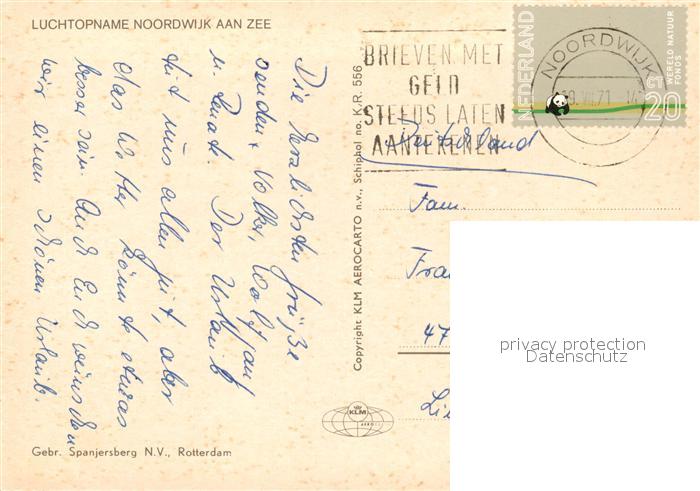 LUCHTOPNAME NOORDWIJK AAN ZEE
Die herzlichsten Grüße
senden, Volker, Wolfgang
u. Renate. Der Urlaub
tut uns allen gut, aber
das Wetter könnte etwas
besser sein. Auch Euch wünschen
wir einen schönen Urlaub.
Gebr. Spanjersberg N.V., Rotterdam
Copyright KLM AEROCARTO n.v., Schiphol no. K.R. 556
KLM
AERO
BRIEVEN MET
GELD
STEEDS LATEN
AANTEKENEN
NOORDWIJK
NEDERLAND
WERELD NATUUR
FONDS
20
Deutschland
Fam.
Fra
47
Li
privacy protection
Datenschutz